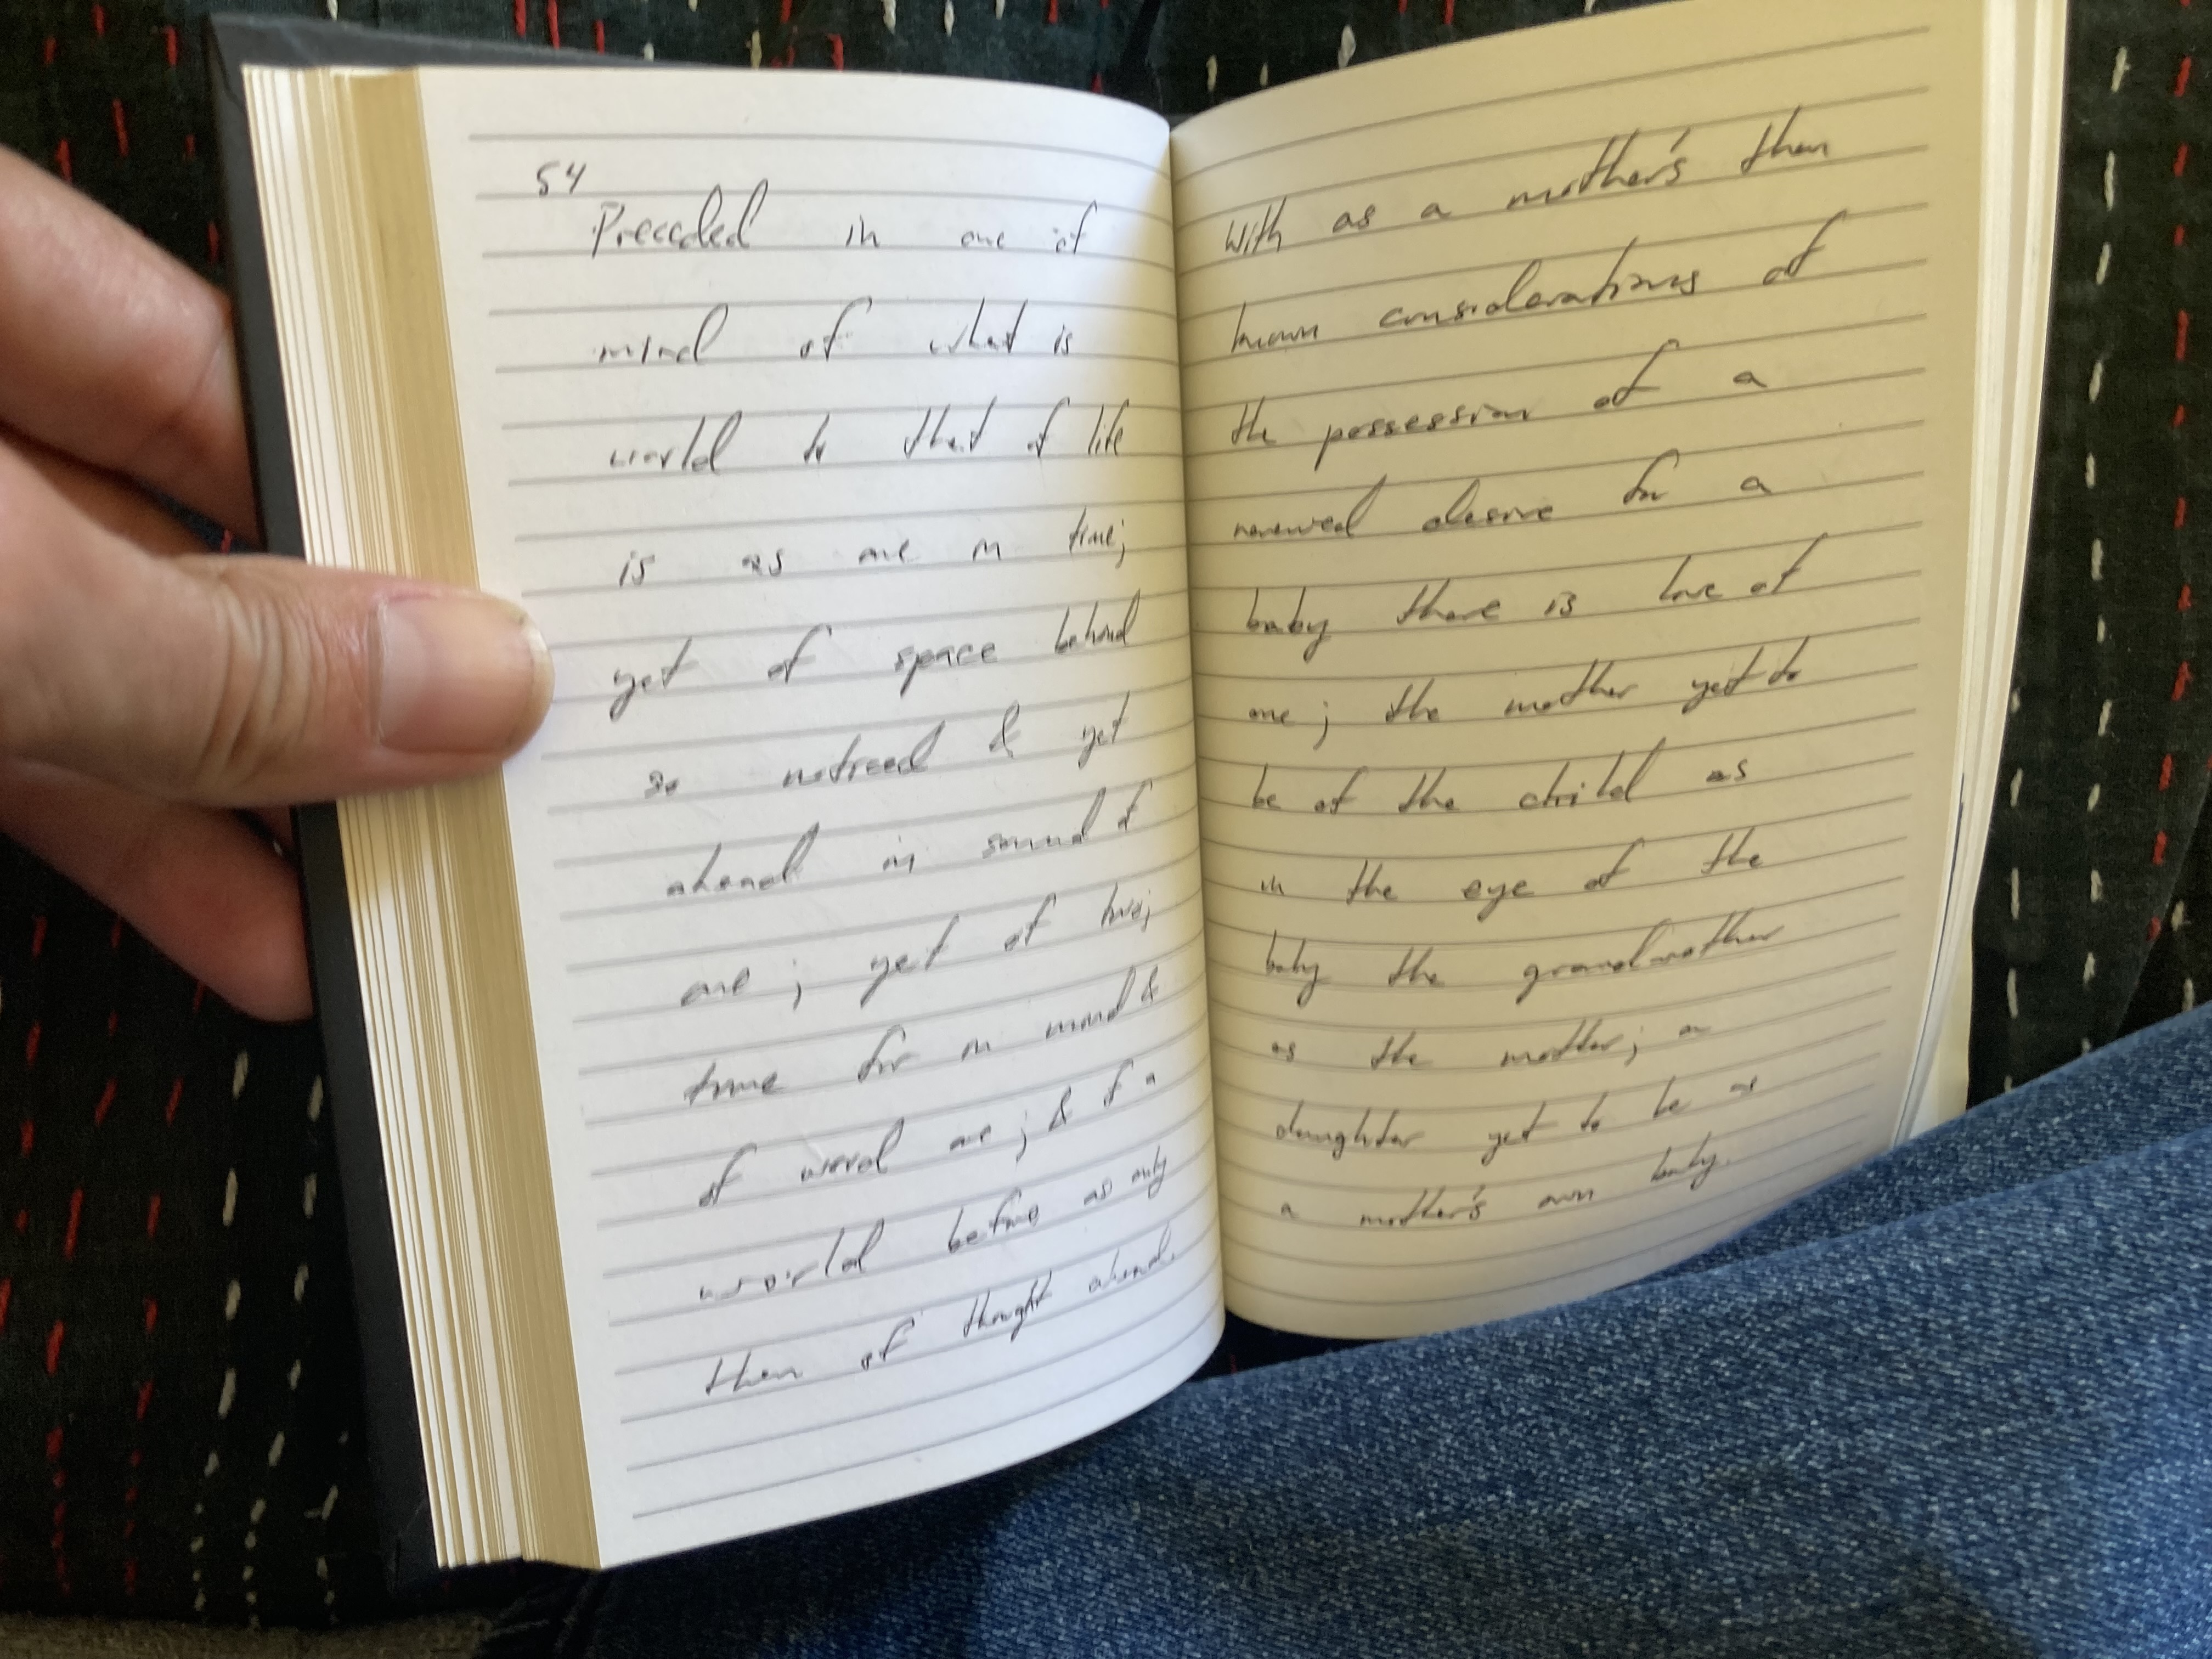 54
Preceded in one of
mind of what is
world to that of life
is as one in time;
yet of space behind
so noticed & yet
ahead in sound of
one; yet of two;
time for in mind &
of word one; & of a
world before as only
then of thought ahead.
With as a mother's then
known considerations of
the possession of a
renewed desire for a
baby there is love of
one; the mother yet to
be of the child as
in the eye of the
baby the grandmother
as the mother; a
daughter yet to be as
a mother's own baby.